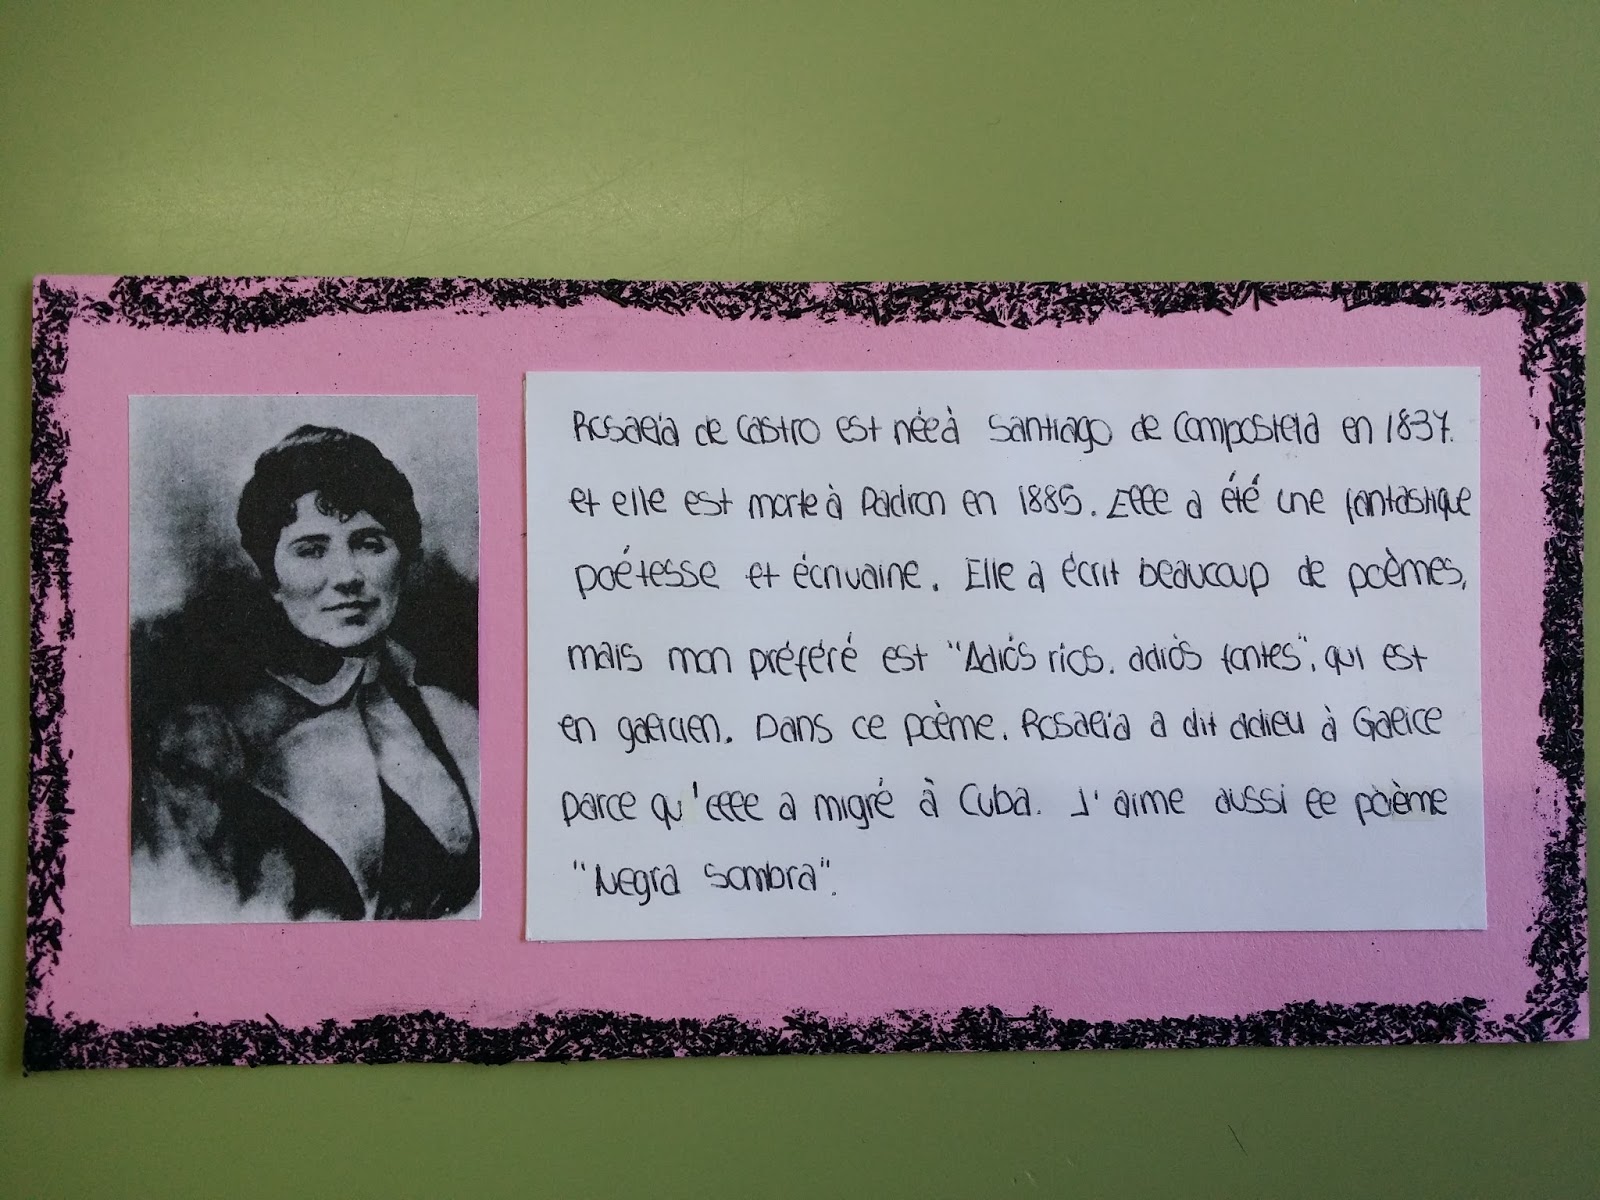 Rosalía de Castro est née à Santiago de Compostela en 1837.
et elle est morte à Padron en 1885. Elle a été une fantastique
poétesse et écrivaine. Elle a écrit beaucoup de poèmes,
mais mon préféré est "Adiós rios, adiòs fontes", qui est
en galicien. Dans ce poème, Rosalía a dit adieu à Galice
parce qu'elle a migré à Cuba. J'aime aussi le poème
"Negra Sombra".